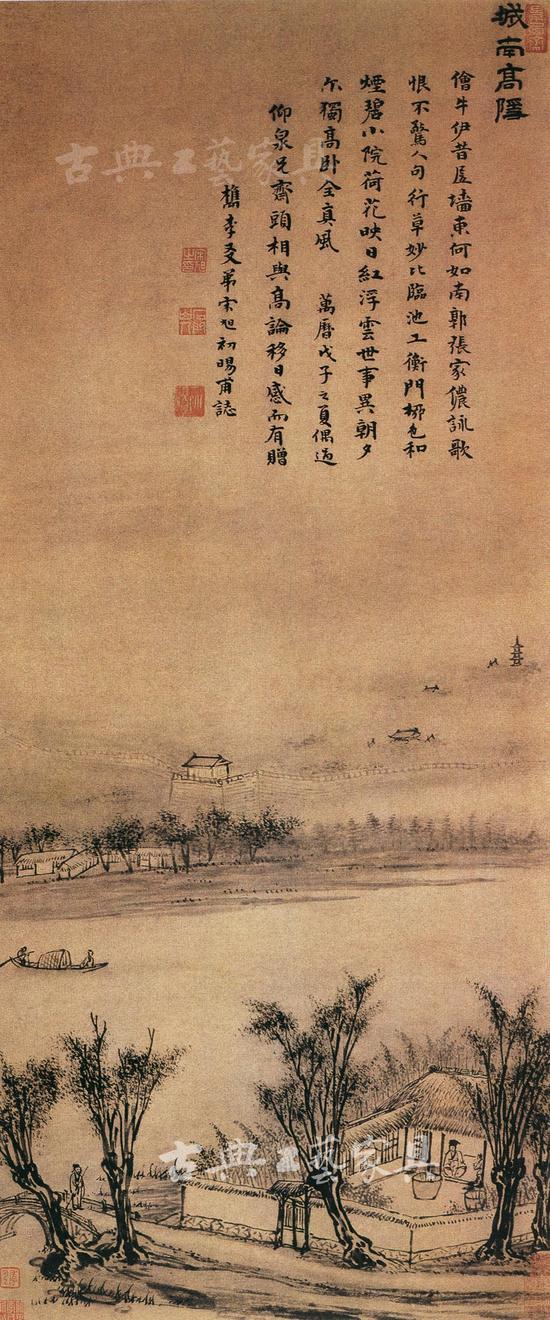 城南高隱
儈牛伊昔居墻東何如南郭張家儂詠歌
恨不驚人句行草妙比臨池工衡門柳色和
煙碧小院荷花映日紅浮雲世事異朝夕
尔獨高卧全真風 萬曆戊子之夏偶過
仰泉兄齋頭相與高論移日感而有贈
檇李友弟宋旭初暘甫誌
古典工藝家具
古典工藝家具